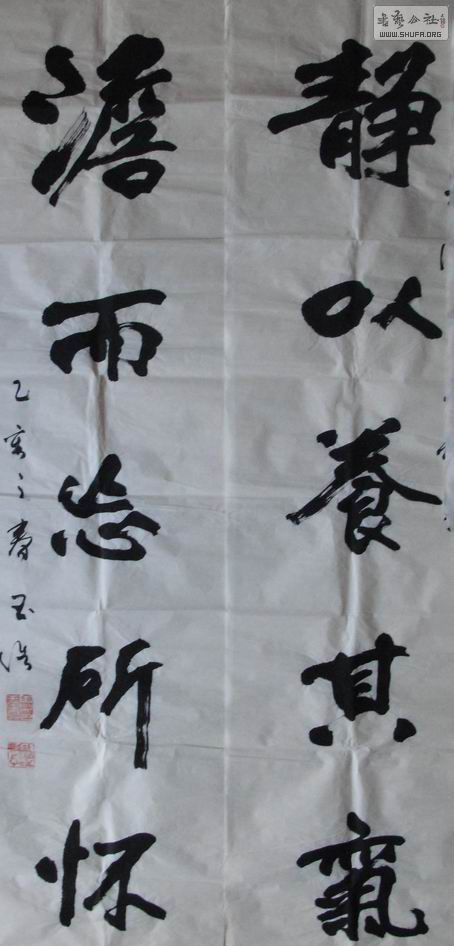 書藝公社
WWW.SHUFA.ORG
静以養其氣
澹而忘所怀
乙亥之春